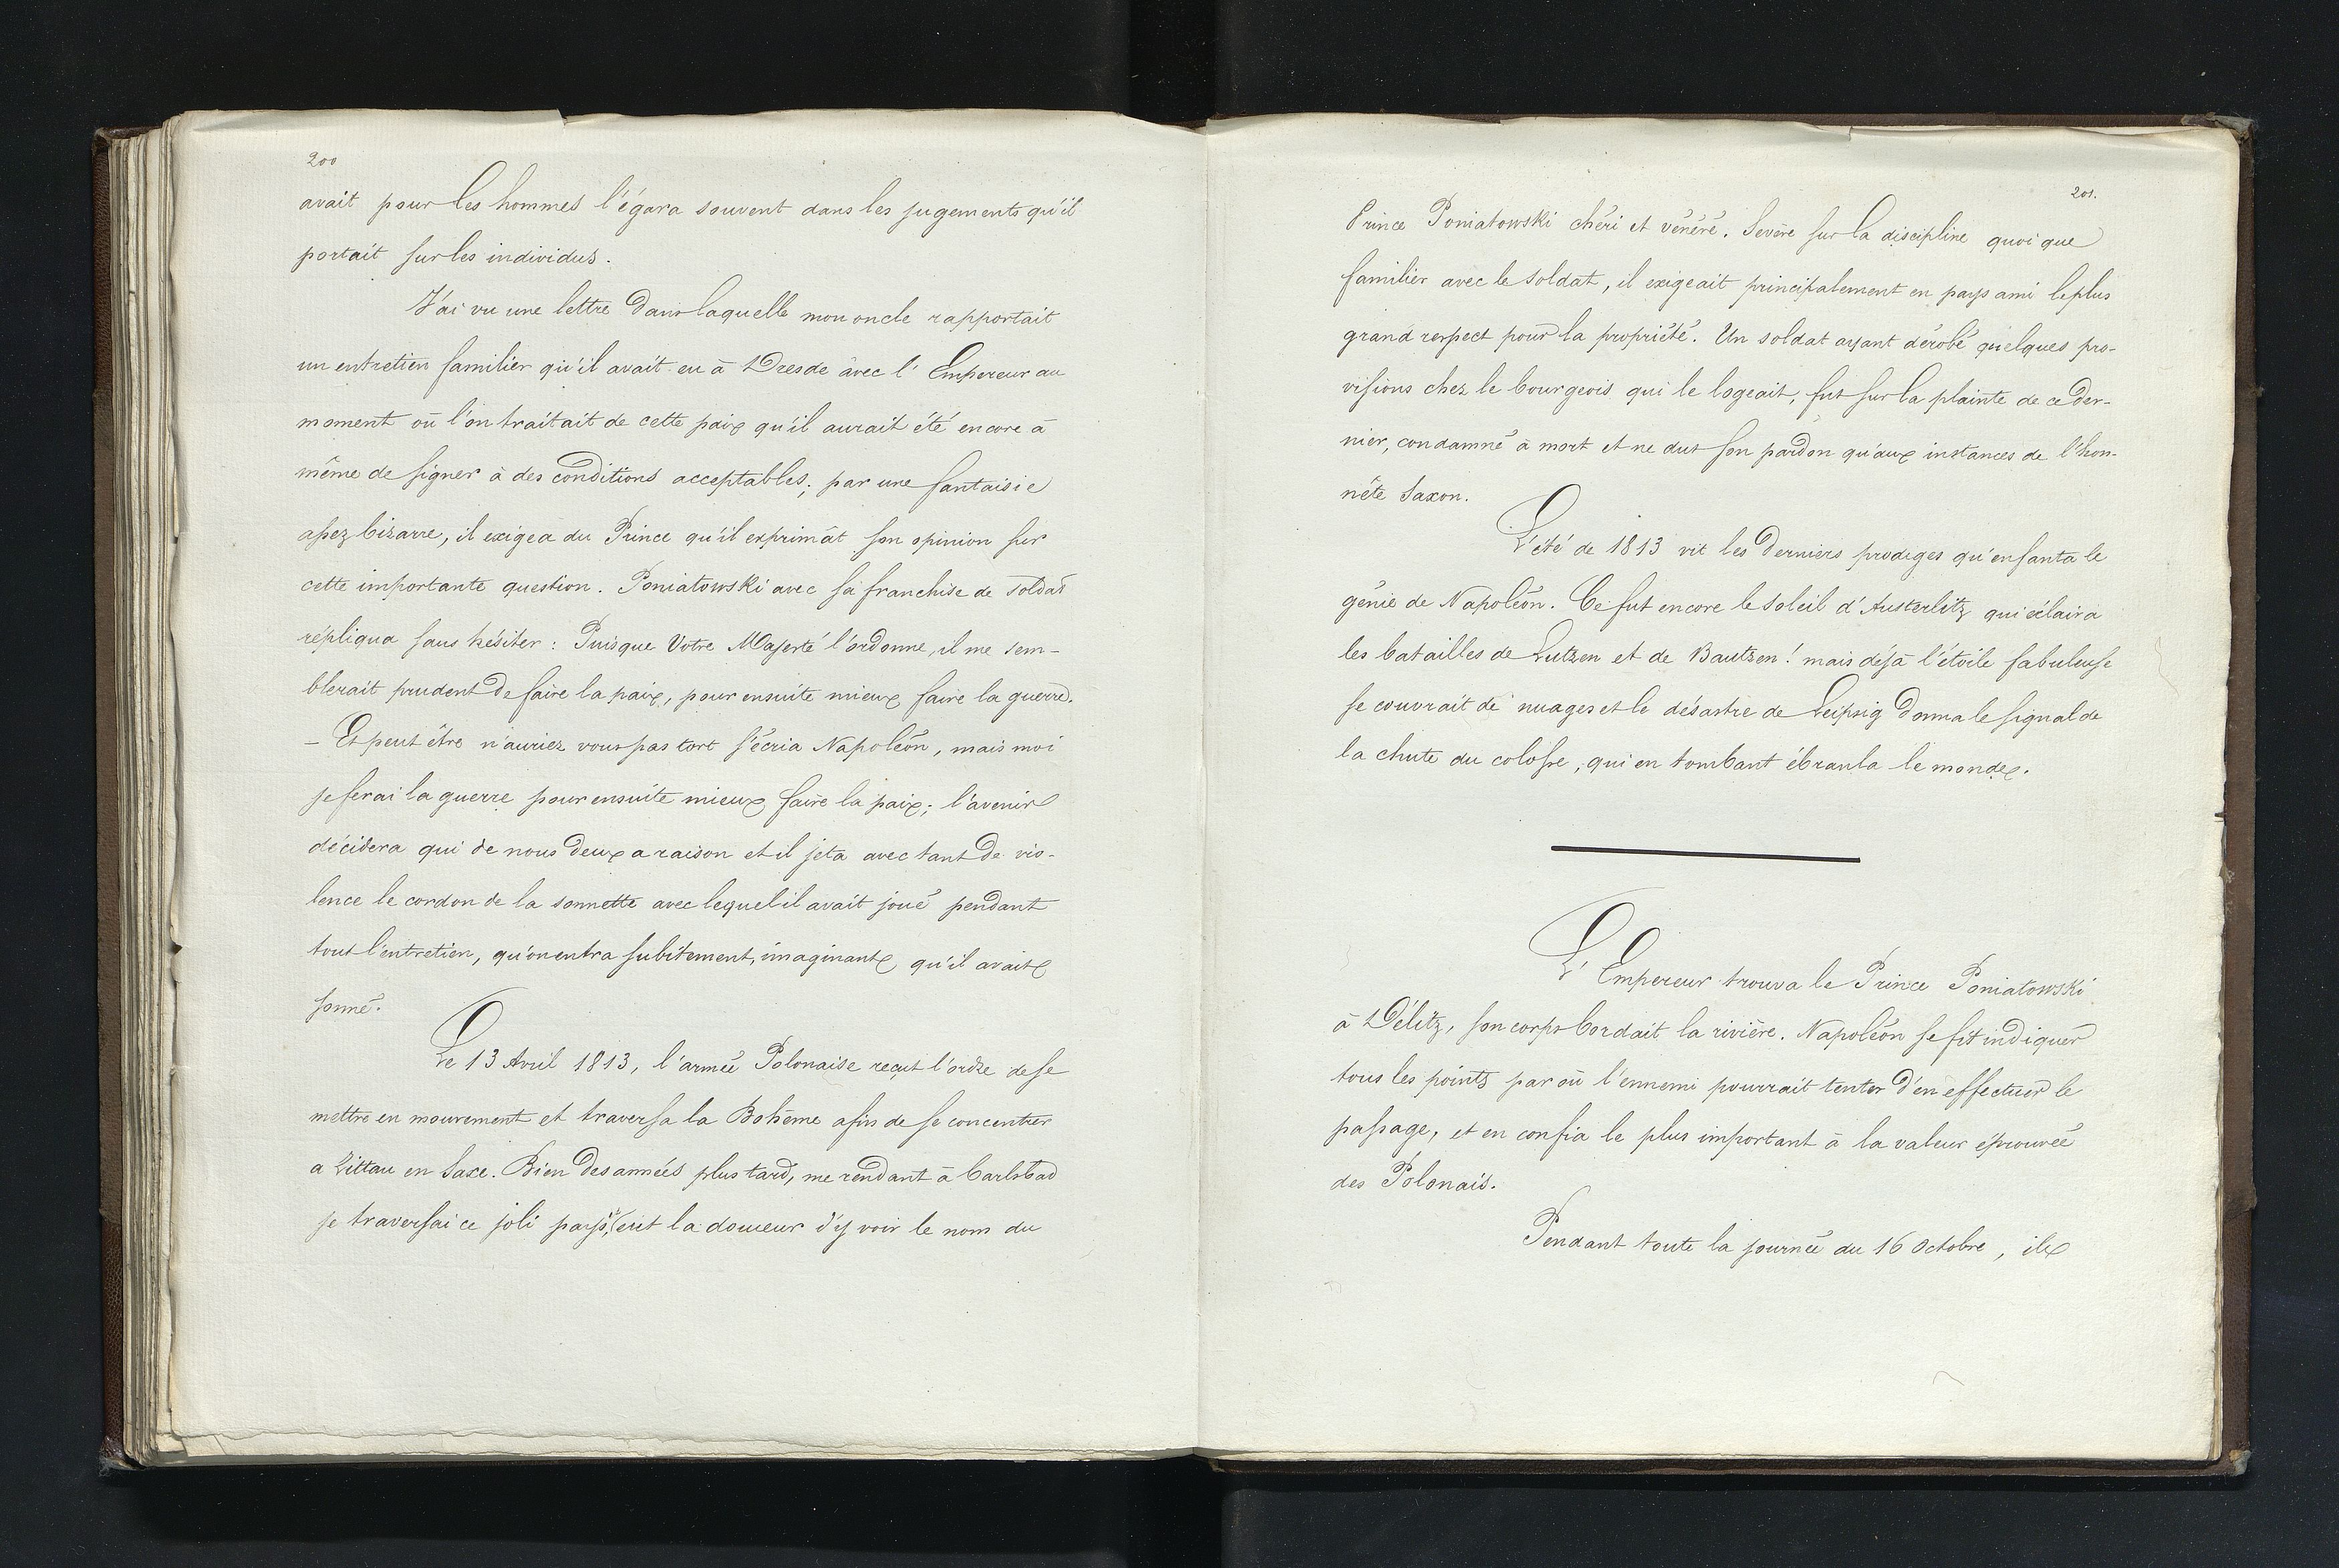 200
avait pour les hommes l'égara souvent dans les jugements qu'il
portait sur les individus.
J'ai vu une lettre dans laquelle mon oncle rapportait
un entretien familier qu'il avait eu à Dresde avec l'Empereur au
moment où l'on traitait de cette paix qu'il aurait été encore à
même de signer à des conditions acceptables; par une fantaisie
assez bizarre, il exigea du Prince qu'il exprimât son opinion sur
cette importante question. Poniatowski avec sa franchise de soldat
répliqua sans hésiter: Puisque Votre Majesté l'ordonne, il me sem-
blerait prudent de faire la paix, pour ensuite mieux faire la guerre.
– Et peut être n'auriez vous pas tort s'écria Napoléon, mais moi
je ferai la guerre pour ensuite mieux faire la paix; l'avenir
décidera qui de nous deux a raison et il jeta avec tant de vio-
lence le cordon de la sonnette avec lequel il avait joué pendant
tout l'entretien, qu'on entra subitement, imaginant qu'il avait
sonné.
Le 13 Avril 1813, l'armée Polonaise reçut l'ordre de se
mettre en mouvement et traversa la Bohème afin de se concentrer
a Zittau en Saxe. Bien des années plus tard, me rendant à Carlsbad
je traversai ce joli pays, j'eus la douceur d'y voir le nom du
201.
Prince Poniatowski chéri et vénéré. Sevère sur la discipline quoi que
familier avec le soldat, il exigeait principalement en pays ami le plus
grand respect pour la propriété. Un soldat ayant dérobé quelques pro-
visions chez le bourgeois qui le logeait, fut sur la plainte de ce der-
nier, condamné à mort et ne dut son pardon qu'aux instances de l'hon-
nête Saxon.
L'été de 1813 vit les derniers prodiges qu'enfanta le
génie de Napoléon. Ce fut encore le soleil d'Austerlitz qui éclaira
les batailles de Lutzen et de Bautzen! mais déjà l'étoile fabuleuse
se couvrait de nuages et le désastre de Leipsig donna le signal de
la chute du colosse, qui en tombant ébranla le monde.
L'Empereur trouva le Prince Poniatowski
à Délitz, son corps bordait la rivière. Napoléon se fit indiquer
tous les points par où l'ennemi pourrait tenter d'en effectuer le
passage, et en confia le plus important à la valeur éprouvée
des Polonais.
Pendant toute la journée du 16 Octobre, il